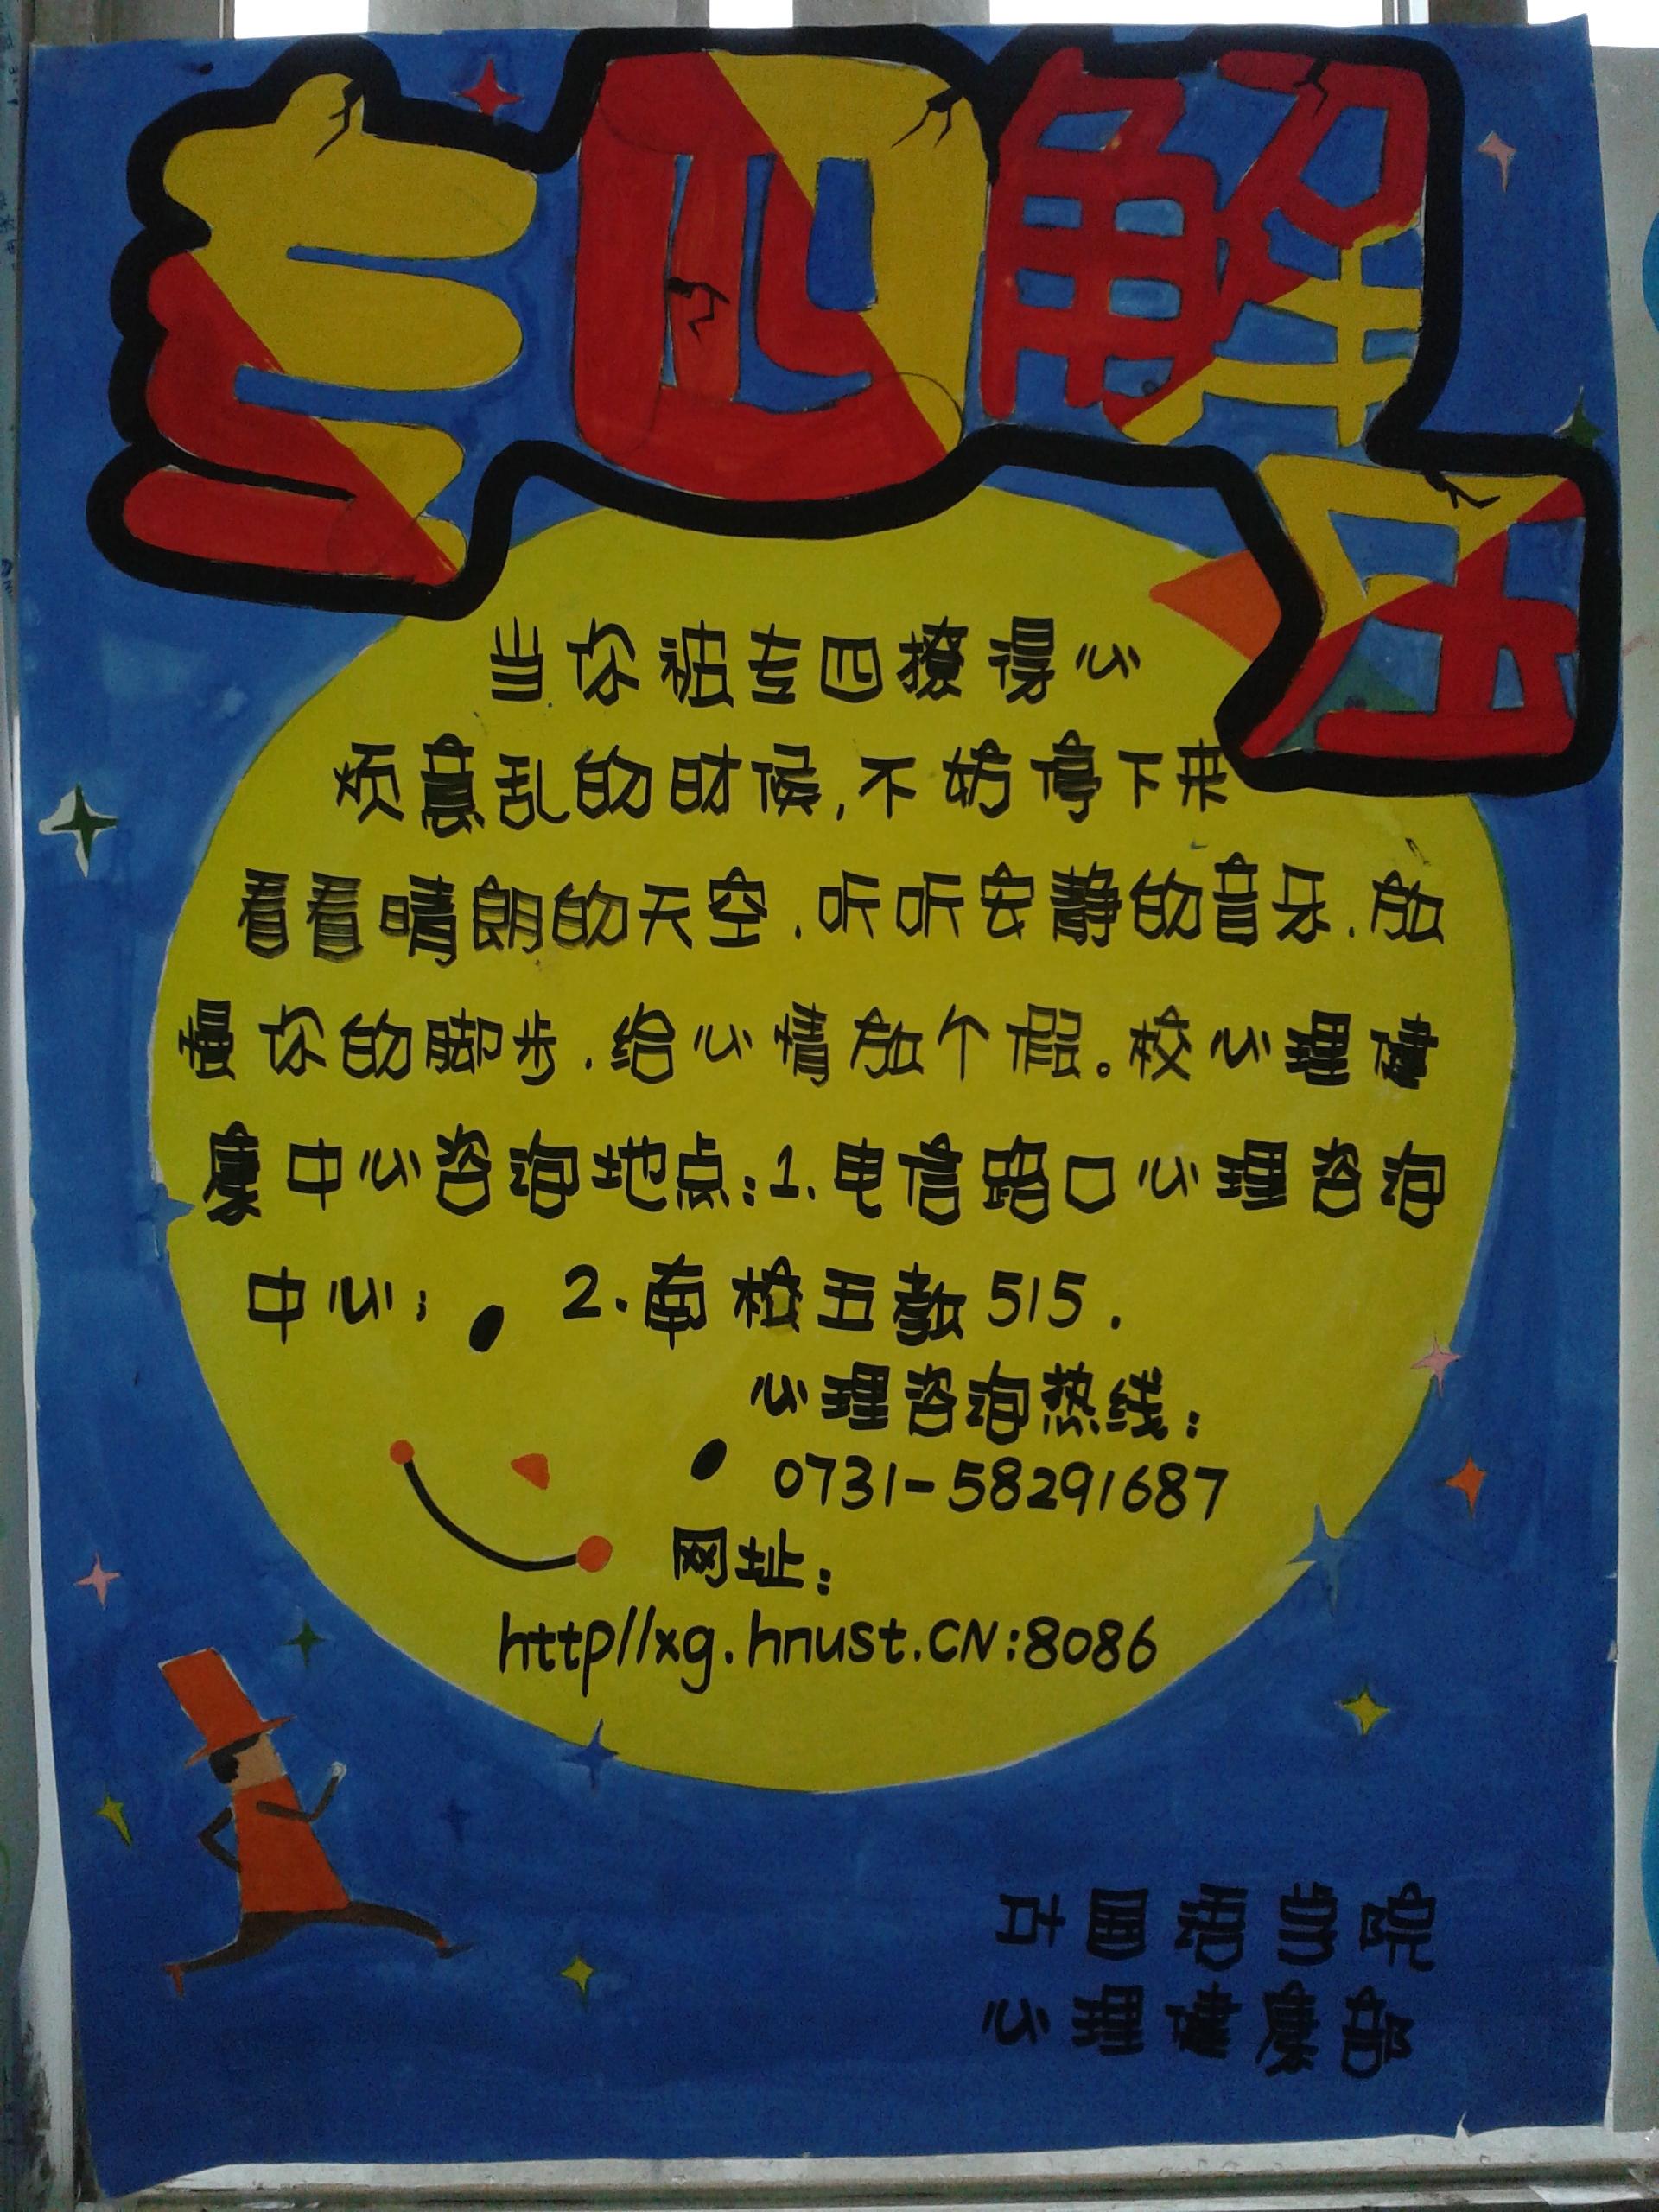 专四解压
当你被专四撩得心
烦意乱的时候,不妨停下来
看看晴朗的天空.听听安静的音乐.放
慢你的脚步.给心情放个假。校心理健
康中心咨询地点:1.电信路口心理咨询
中心; 2.南校五教515.
心理咨询热线:
0731-58291687
网址:
http//xg.hnust.CN:8086
国语学院
心理健康部